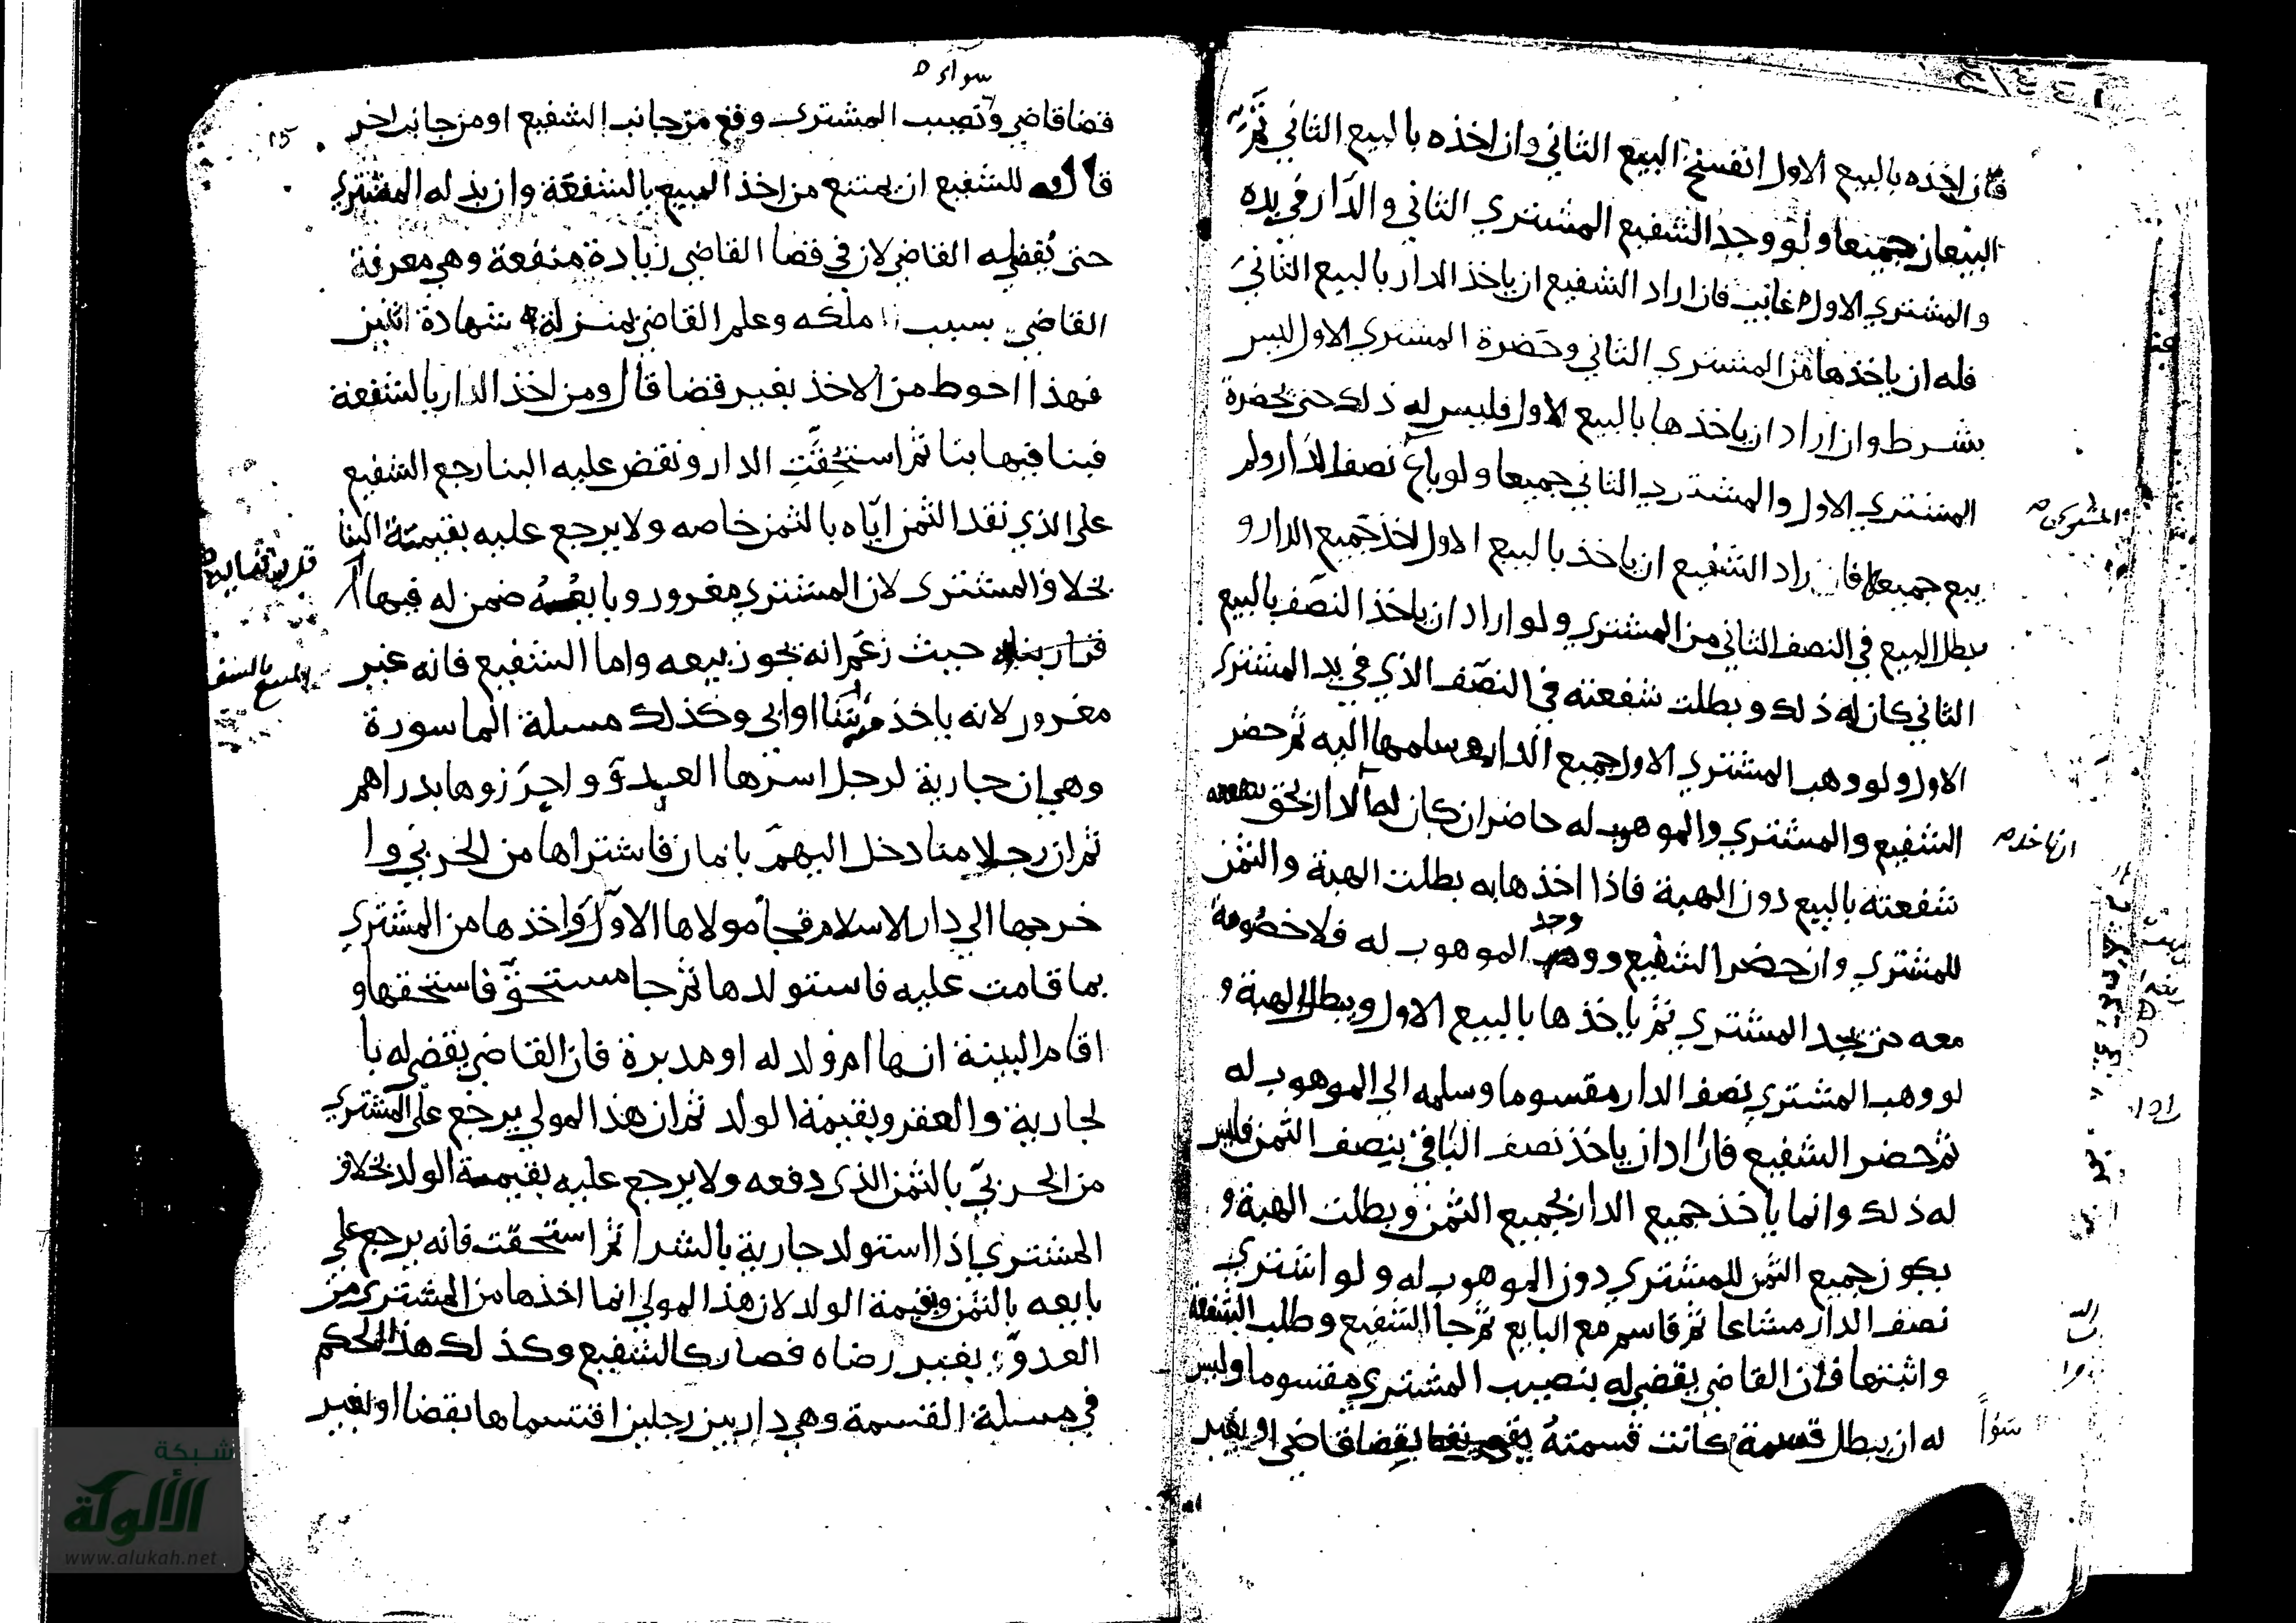 فان اخذه بالبيع الاول انفسخ البيع الثاني وان اخذه بالبيع الثاني تم
البيعان جميعا ولو وجد الشفيع المشتري الثاني والدار في يده
والمشتري الاول غايب فان اراد الشفيع ان ياخذ الدار بالبيع الثاني
فله ان ياخذها من المشتري الثاني وحضرة المشتري الاول ليس
بشرط وان اراد ان ياخذها بالبيع الاول فليس له ذلك حتى يحضره
المشتري الاول والمشتري الثاني جميعا ولو باع نصف الدار ولم
المشتري
يبع جميعها فان اراد الشفيع ان ياخذ بالبيع الاول اخذ جميع الدار و
يبطل البيع في النصف الثاني من المشتري ولو اراد ان ياخذ النصف بالبيع
الثاني كان له ذلك وبطلت شفعته في النصف الذي في يد المشتري
الاول ولو وهب المشتري الاول جميع الدار وسلمها اليه ثم حضر
الشفيع والمشتري والموهوب له حاضران كان له الدار بحق
ان ياخذ
شفعته بالبيع دون الهبة فاذا اخذها به بطلت الهبة والثمن
للمشتري وان حضر الشفيع ووجد الموهوب له فلا خصومة
معه حتى يجد المشتري ثم ياخذها بالبيع الاول ويبطل الهبة و
لو وهب المشتري نصف الدار مقسوما وسلمه الى الموهوب له
ثم حضر الشفيع فان اراد ان ياخذ نصف الباقي بنصف الثمن فليس
له ذلك وانما ياخذ جميع الدار بجميع الثمن وبطلت الهبة و
يكون جميع الثمن للمشتري دون الموهوب له ولو اشتري
نصف الدار مشاعا ثم قاسم مع البايع ثم جا الشفيع وطلب الشفعة
واثبتها فان القاضي يقضي له بنصيب المشتري مقسوما وليس
له ان يبطل قسمة كانت قسمته بقضا قاضي او بغير
سوآ
سوآء
قضا قاضي ونصيب المشتري وقع من جانب الشفيع او من جانب اخر
١٥
قال للشفيع ان يمتنع من اخذ المبيع بالشفعة وان بذله المشتري
حتى يقضي له القاضي لان في قضا القاضي زيادة منفعة وهي معرفة
القاضي بسبب ملكه وعلم القاضي بمنزلة شهادة اثنين
فهذا احوط من الاخذ بغير قضا قال ومن اخذ الدار بالشفعة
فبنا فيها بنا ثم استحقت الدار ونقض عليه البنا رجع الشفيع
على الذي نقد الثمن اياه بالثمن خاصه ولا يرجع عليه بقيمة البنا
بخلاف المشتري لان المشتري مغرور وبايعه ضمن له فيها
قرار بنايه حيث زعم انه يجوز بيعه واما الشفيع فانه غير
مغرور لانه ياخذ منه شا او ابى وكذلك مسلة الماسورة
وهي ان جارية لرجل اسرها العدو واحرزوها بدراهم
ثم ان رجلا منا دخل اليهم بامان فاشتراها من الحربي وا
خرجها الي دار الاسلام فجا مولاها الاول واخذها من المشتري
بما قامت عليه فاستولدها ثم جا مستحق فاستحقها و
اقام البينة انها ام ولد له او مدبرة فان القاضي يقضي له با
لجارية والعقر وبقيمة الولد ثم ان هذا المولي يرجع على المشتري
من الحربي بالثمن الذي دفعه ولا يرجع عليه بقيمة الولد بخلاف
المشتري اذا استولد جارية بالشرا ثم استحقت فانه يرجع على
بايعه بالثمن وبقيمة الولد لان هذا المولي انما اخذها من المشتري من
العدو بغير رضاه فصار كالشفيع وكذلك هذا الحكم
في مسلة القسمة وهي دار بين رجلين اقتسماها بقضا او بغير
شبكة
الألوكة
www.alukah.net